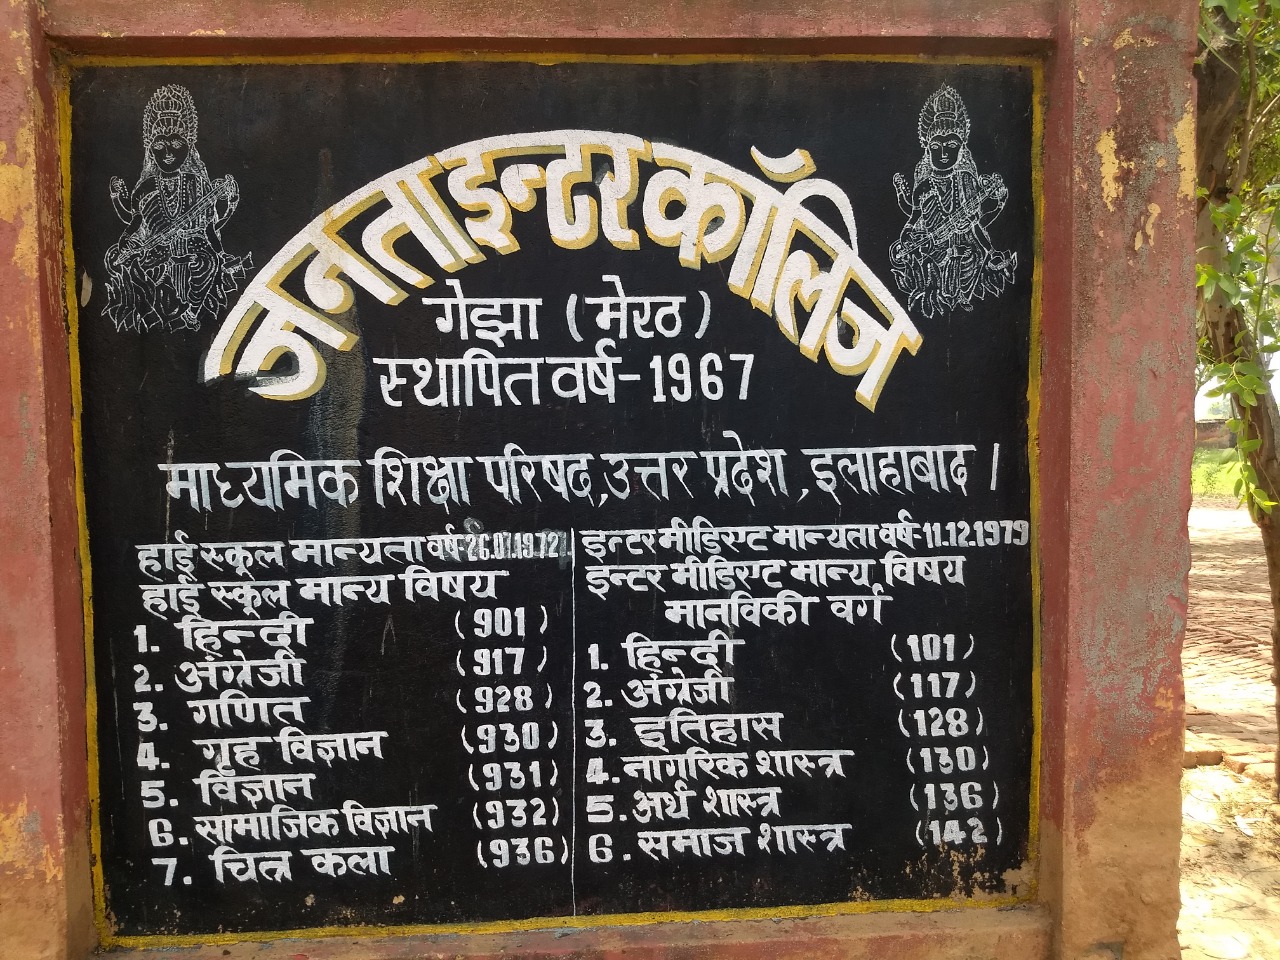 जनता इन्टर कॉलिज
गेझा (मेरठ)
स्थापित वर्ष-1967
माध्यमिक शिक्षा परिषद, उत्तर प्रदेश, इलाहाबाद ।
हाई स्कूल मान्यता वर्ष-26.07.1972
हाई स्कूल मान्य विषय
1. हिन्दी (901)
2. अंग्रेजी (917)
3. गणित (928)
4. गृह विज्ञान (930)
5. विज्ञान (931)
6. सामाजिक विज्ञान (932)
7. चित्र कला (936)
इन्टरमीडिएट मान्यता वर्ष-11.12.1979
इन्टर मीडिएट मान्य विषय
मानविकी वर्ग
1. हिन्दी (101)
2. अंग्रेजी (117)
3. इतिहास (128)
4. नागरिक शास्त्र (130)
5. अर्थ शास्त्र (136)
6. समाज शास्त्र (142)